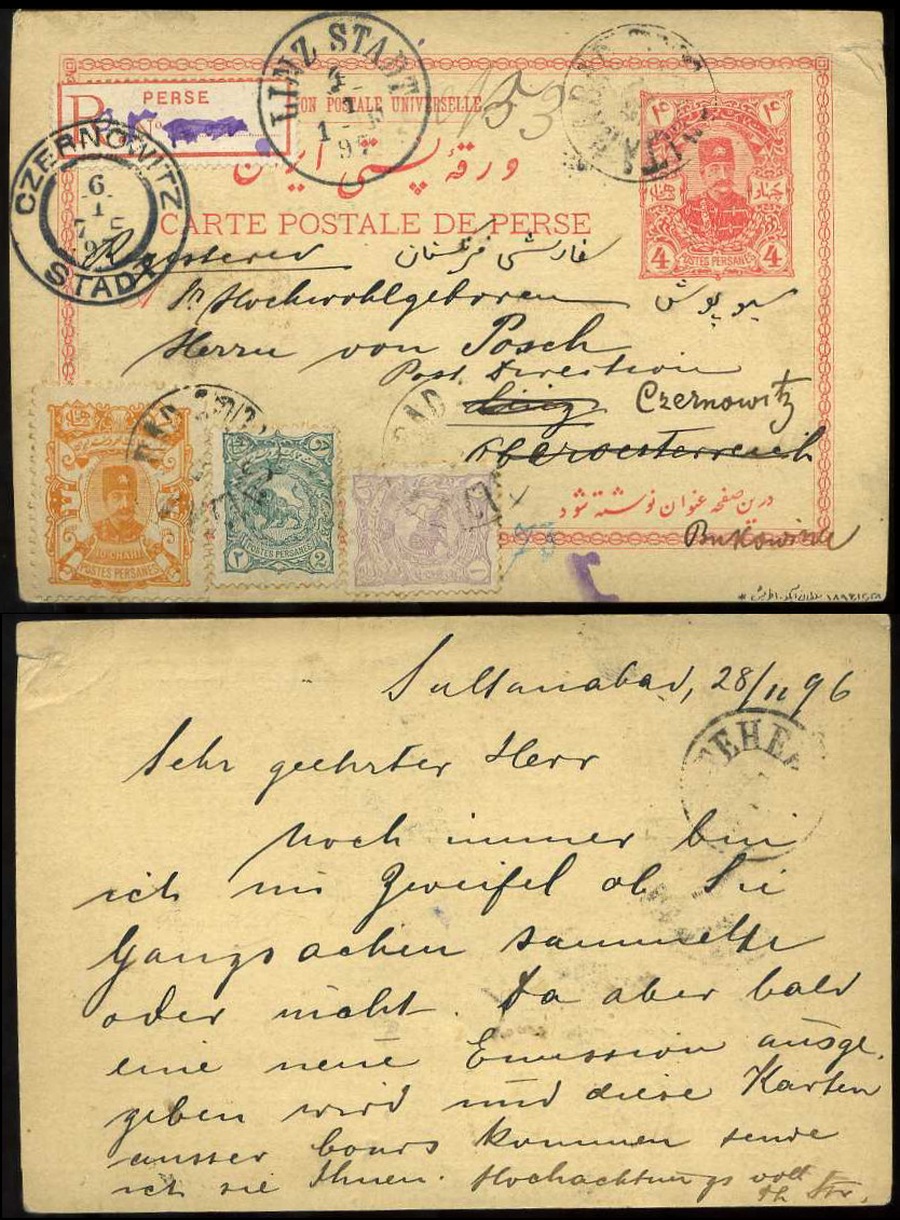 LINZ STADT
4
1
97
R
PERSE
UNION POSTALE UNIVERSELLE
153
ورقهٔ پستی ایران
CARTE POSTALE DE PERSE
CZERNOWITZ
6
1
97
STADT
Registered
سفارشی فرنگستان
Sr Hochwohlgeboren
Herrn von Posch
Post Direction
Linz Czernowitz
Oberoesterreich
Bukowina
درین صفحه عنوان نوشته شود
4 POSTES PERSANES 4
POSTES PERSANES
۲ POSTES PERSANES 2
POSTES PERSANES
Sultanabad, 28/11 96
TEHE
Sehr geehrter Herr
Noch immer bin
ich im Zweifel ob Sie
Ganzsachen sammeln
oder nicht. Da aber bald
eine neue Emission ausge-
geben wird und diese Karten
ausser cours kommen sende
ich sie Ihnen. Hochachtungsvoll